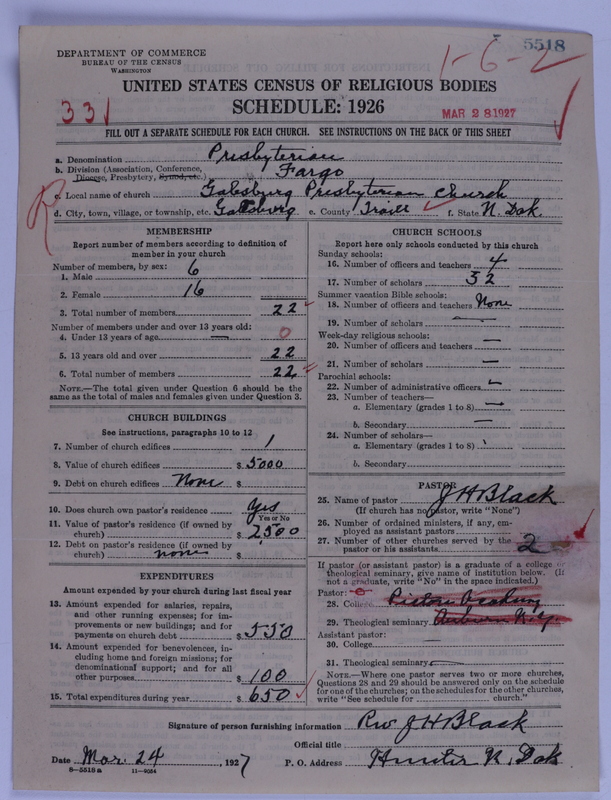 5518
1-6-2
DEPARTMENT OF COMMERCE
BUREAU OF THE CENSUS
WASHINGTON
UNITED STATES CENSUS OF RELIGIOUS BODIES
SCHEDULE: 1926
331
MAR 28 1927
FILL OUT A SEPARATE SCHEDULE FOR EACH CHURCH. SEE INSTRUCTIONS ON THE BACK OF THIS SHEET
a. Denomination Presbyterian
b. Division (Association, Conference, Diocese, Presbytery, Synod, etc.) Fargo
c. Local name of church Galesburg Presbyterian Church
R
d. City, town, village, or township, etc. Galesburg e. County Traill f. State N. Dak.
MEMBERSHIP
Report number of members according to definition of
member in your church
Number of members, by sex:
1. Male 6
2. Female 16
3. Total number of members 22
Number of members under and over 13 years old:
4. Under 13 years of age — 0
5. 13 years old and over 22
6. Total number of members 22
NOTE.—The total given under Question 6 should be
same as the total of males and females given under Question 3.
CHURCH BUILDINGS
See instructions, paragraphs 10 to 12
7. Number of church edifices 1
8. Value of church edifices $ 5000
9. Debt on church edifices None $
10. Does church own pastor's residence Yes
Yes or No
11. Value of pastor's residence (if owned by
church) $ 2,500
12. Debt on pastor's residence (if owned by
church) none $
EXPENDITURES
Amount expended by your church during last fiscal year
13. Amount expended for salaries, repairs,
and other running expenses; for im-
provements or new buildings; and for
payments on church debt $ 550
14. Amount expended for benevolences, in-
cluding home and foreign missions; for
denominational support; and for all
other purposes $ 100
15. Total expenditures during year $ 650
CHURCH SCHOOLS
Report here only schools conducted by this church
Sunday schools:
16. Number of officers and teachers 4
17. Number of scholars 52
Summer vacation Bible schools:
18. Number of officers and teachers None
19. Number of scholars —
Week-day religious schools:
20. Number of officers and teachers —
21. Number of scholars —
Parochial schools:
22. Number of administrative officers —
23. Number of teachers—
a. Elementary (grades 1 to 8) —
b. Secondary —
24. Number of scholars—
a. Elementary (grades 1 to 8)
b. Secondary
PASTOR
25. Name of pastor J H Black
(If church has no pastor, write "None")
26. Number of ordained ministers, if any, em-
ployed as assistant pastors
27. Number of other churches served by the
pastor or his assistants 2
If pastor (or assistant pastor) is a graduate of a college or
theological seminary, give name of institution below. (If
not a graduate, write "No" in the space indicated.)
Pastor:
28. College Pictou Academy
29. Theological seminary Auburn N.Y.
Assistant pastor:
30. College —
31. Theological seminary —
NOTE.—Where one pastor serves two or more churches,
Questions 28 and 29 should be answered only on the schedule
for one of the churches; on the schedules for the other churches,
write "See schedule for church."
Signature of person furnishing information Rev J H Black
Official title
Date Mar. 24, 1927 P. O. Address Hunter N. Dak
8—5518 a 11—9054